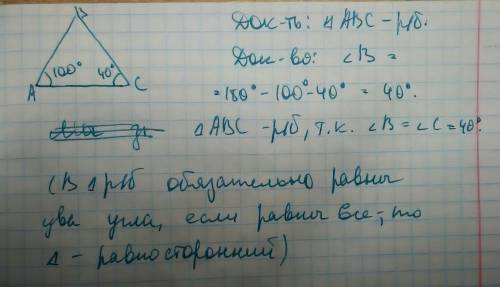 B
100° 40°
A C
Док-ть: △ABC – р/б.
Док-во: ∠B =
= 180° - 100° - 40° = 40°.
△ABC – р/б, т.к. ∠B = ∠C = 40°.
(В △ р/б обязательно равны
два угла, если равны все, то
△ – равносторонний)